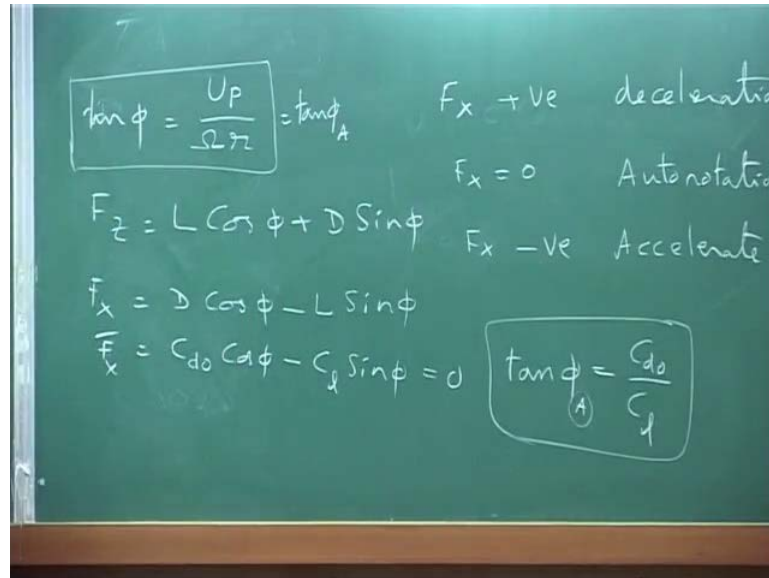 tan φ = Up / Ωr = tanφ_A
F_z = L Cos φ + D Sin φ
F_x = D Cos φ – L Sin φ
F̅_x = C_do Cos φ – C_l Sin φ = 0
F_x +ve deceleratio
F_x = 0 Autorotatio
F_x –ve Accelerate
tan φ_A = C_do / C_l